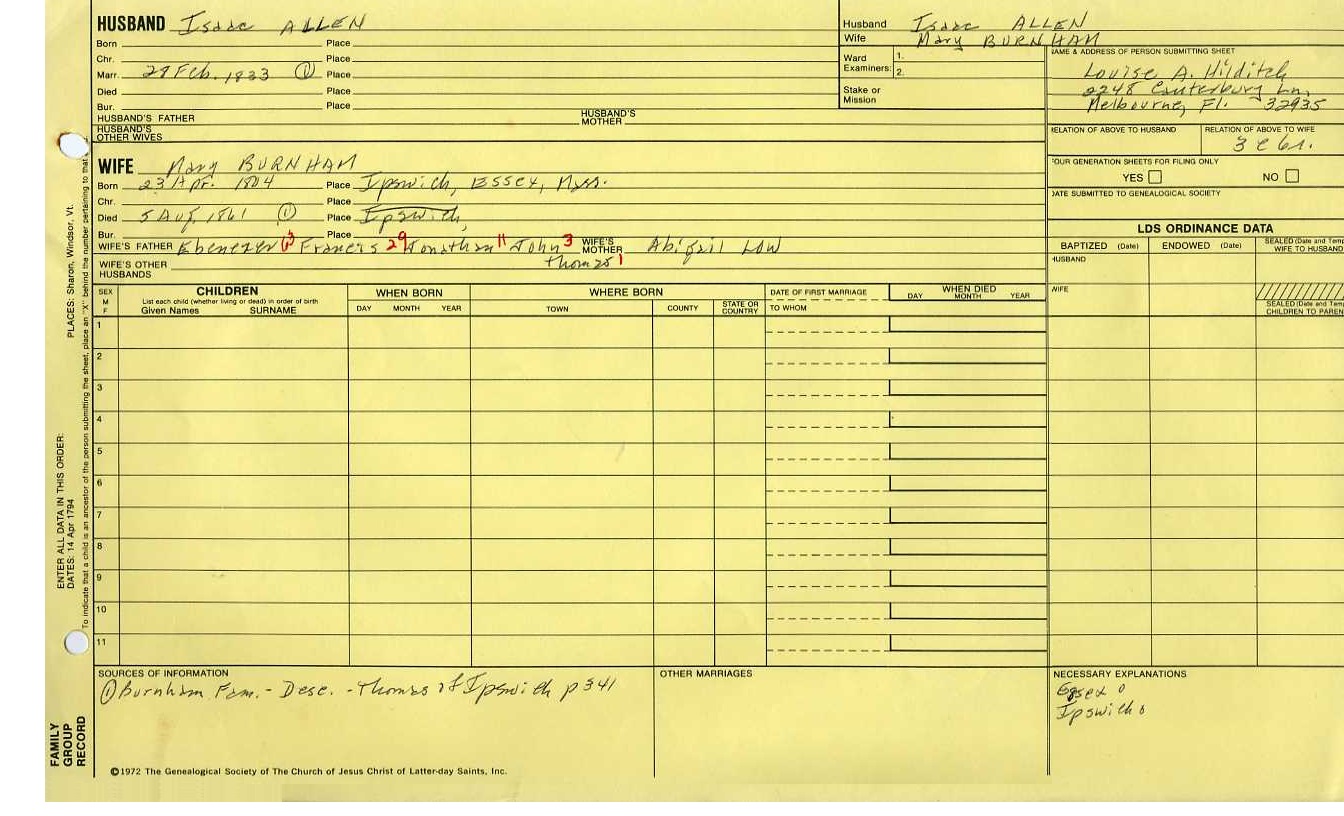 HUSBAND Isaac ALLEN
Born Place
Chr. Place
Marr. 28 Feb. 1833 ① Place
Died Place
Bur. Place
HUSBAND'S FATHER HUSBAND'S MOTHER
HUSBAND'S OTHER WIVES
Husband Isaac ALLEN
Wife Mary BURNHAM
Ward Examiners: 1.
2.
Stake or Mission
NAME & ADDRESS OF PERSON SUBMITTING SHEET
Louise A. Hilditch
2248 Canterbury Ln,
Melbourne, Fl. 32935
RELATION OF ABOVE TO HUSBAND RELATION OF ABOVE TO WIFE
3 c 6 r.
FOUR GENERATION SHEETS FOR FILING ONLY
YES NO
DATE SUBMITTED TO GENEALOGICAL SOCIETY
WIFE Mary BURNHAM
Born 23 Apr. 1804 Place Ipswich, Essex, Mass.
Chr. Place
Died 5 Aug. 1861 ① Place Ipswich,
Bur. Place
WIFE'S FATHER Ebenezer Francis 29 Jonathan 11 John 3 WIFE'S MOTHER Abigail Low
Thomas 1
WIFE'S OTHER HUSBANDS
LDS ORDINANCE DATA
BAPTIZED (Date) ENDOWED (Date) SEALED (Date and Temp
WIFE TO HUSBAND
HUSBAND
WIFE
SEALED (Date and Temp
CHILDREN TO PAREN
SEX M F CHILDREN WHEN BORN WHERE BORN DATE OF FIRST MARRIAGE WHEN DIED
List each child (whether living or dead) in order of birth
Given Names SURNAME DAY MONTH YEAR TOWN COUNTY STATE OR COUNTRY TO WHOM DAY MONTH YEAR
1
2
3
4
5
6
7
8
9
10
11
SOURCES OF INFORMATION
① Burnham Fam. - Desc. - Thomas of Ipswich p 341
OTHER MARRIAGES
NECESSARY EXPLANATIONS
Essex 0
Ipswich 0
©1972 The Genealogical Society of The Church of Jesus Christ of Latter-day Saints, Inc.
FAMILY GROUP RECORD
ENTER ALL DATA IN THIS ORDER:
DATES: 14 Apr 1794
PLACES: Sharon, Windsor, Vt.
To indicate that a child is an ancestor of the person submitting the sheet, place an "X" behind the number pertaining to that